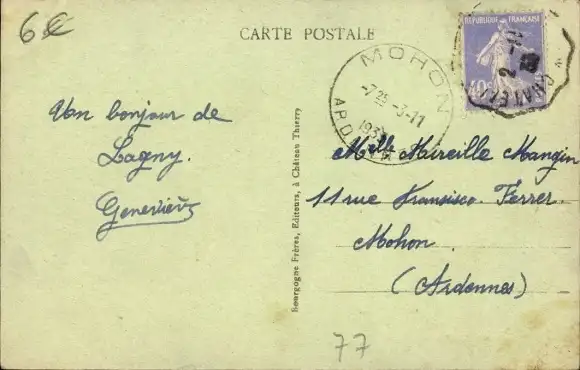 6€
CARTE POSTALE
RÉPUBLIQUE FRANÇAISE
MOHON
-7 25 -3-11
193
ARD
Un bonjour de
Lagny.
Geneviève
Bourgogne Frères, Editeurs, à Château Thierry
Mlle Mireille Mangin
11 rue Fransisco. Ferrer.
Mohon.
(Ardennes)
77